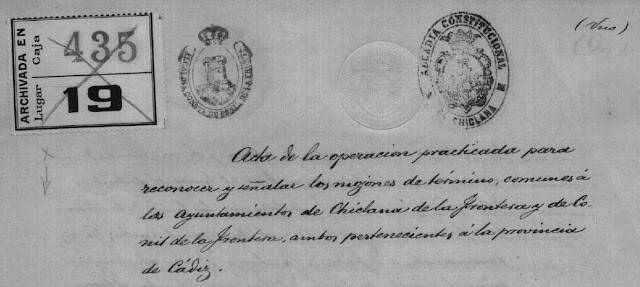 ARCHIVADA EN
Lugar Caja
435
19
ALCALDIA CONSTITUCIONAL
CHICLANA
Acta de la operacion practicada para
reconocer y señalar los mojones de término, comunes á
los Ayuntamientos de Chiclana de la Frontera y de Co-
nil de la Frontera, ambos pertenecientes á la provincia
de Cádiz.